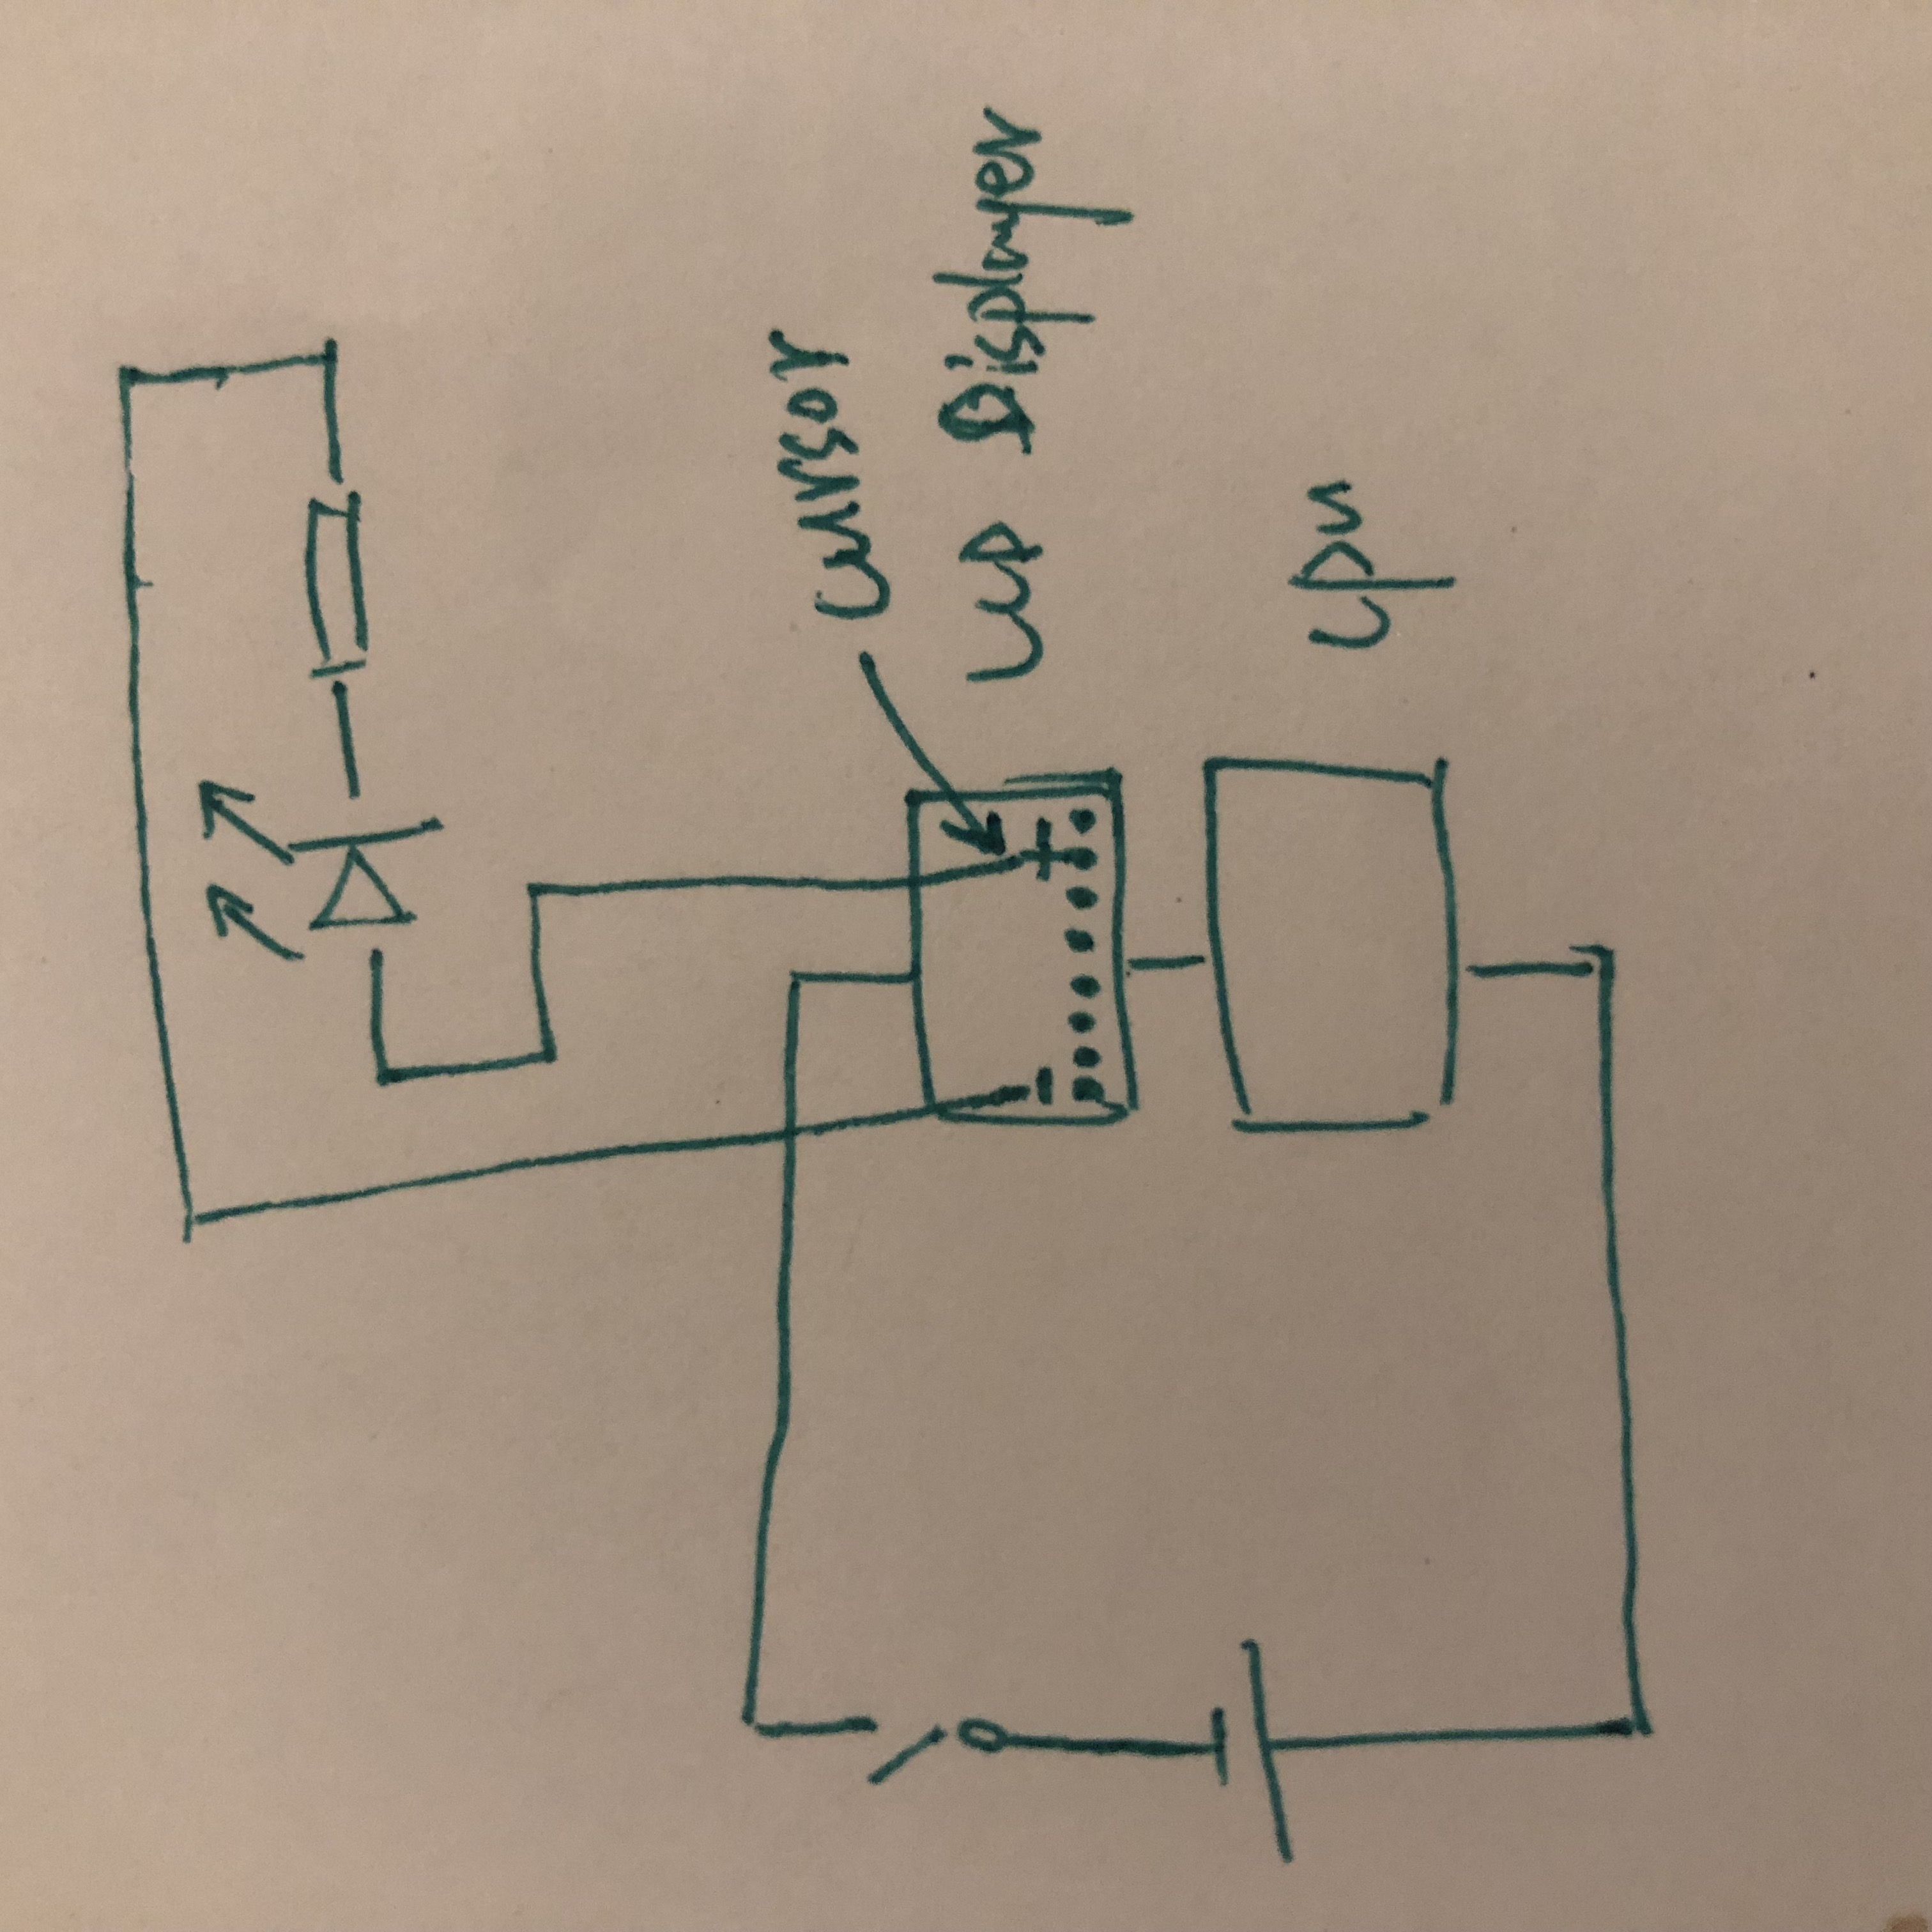 cursor
LCD Displayer
- +
cpu